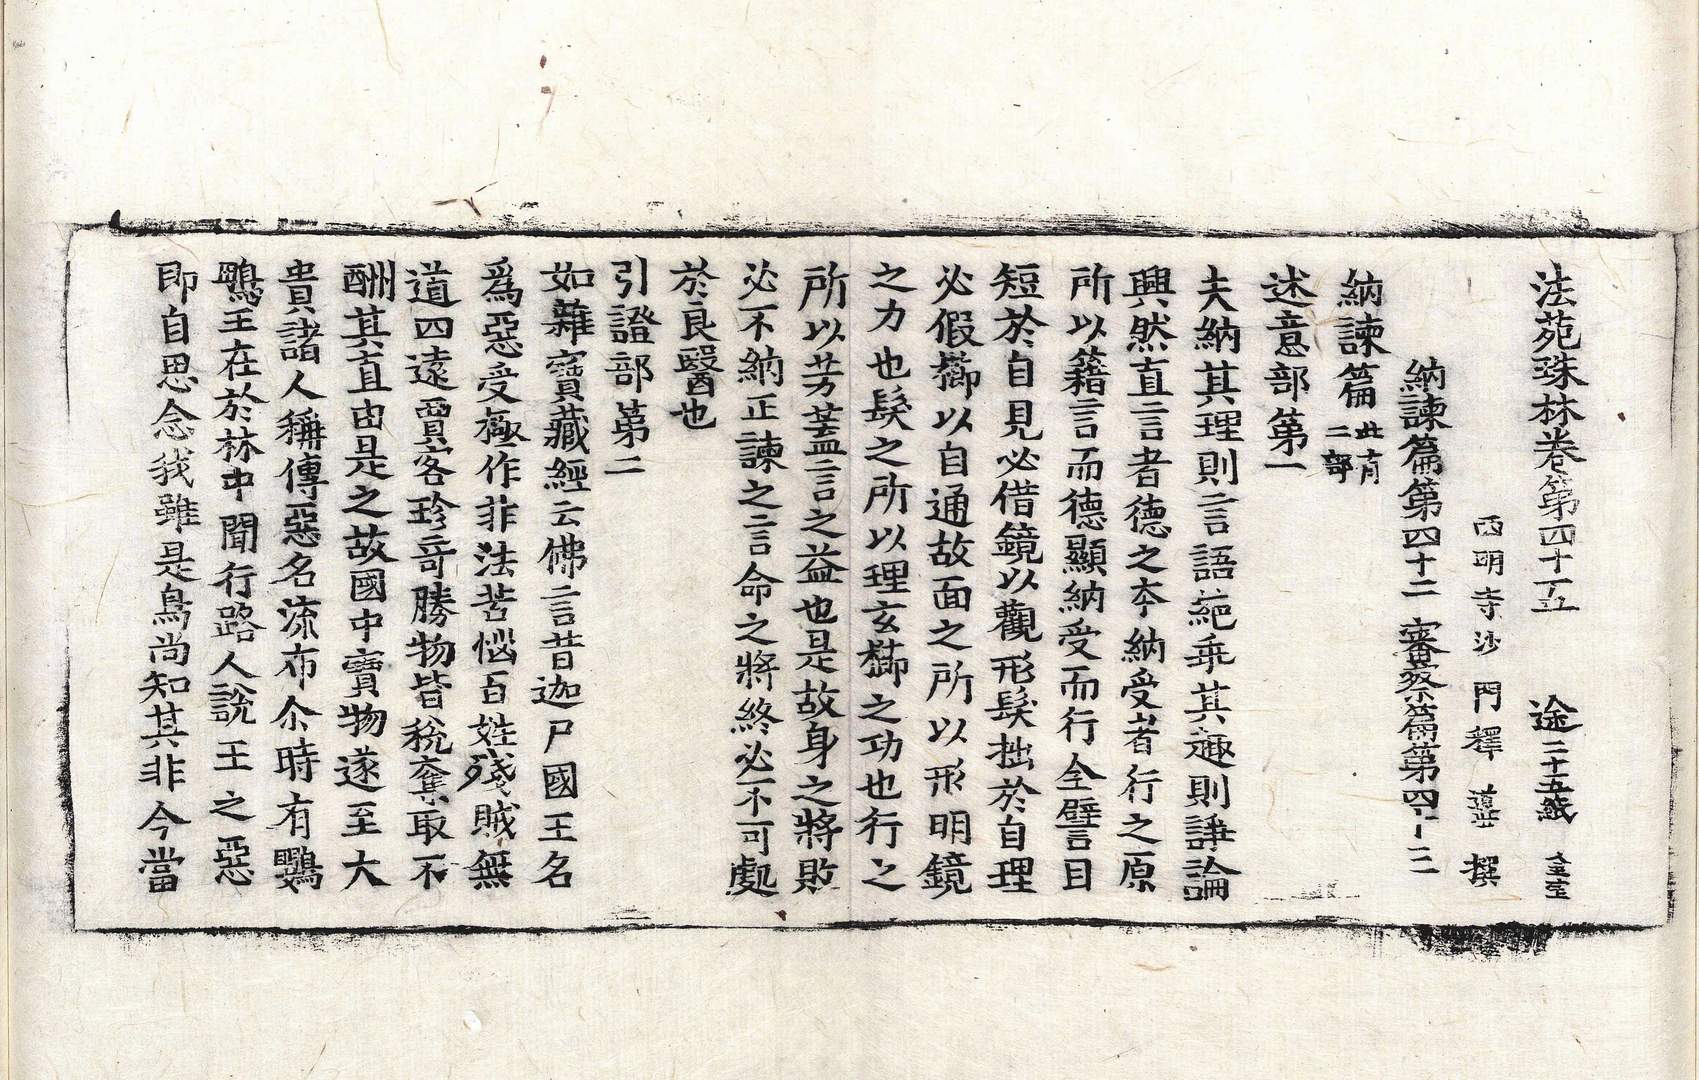 法苑珠林卷第四十五 途 二十五紙
西明寺沙門釋 撰
納諫篇第四十二 審察篇第四十三
納諫篇 此有二部
述意部第一
夫納其理則言語絕乖其趣則諍論
興然直言者德之本納受者行之原
所以籍言而德顯納受而行全譬目
短於自見必借鏡以觀形髮拙於自理
必假櫛以自通故面之所以形明鏡
之力也髮之所以理玄櫛之功也行之
所以芳蓋言之益也是故身之將敗
必不納正諫之言命之將終必不可處
於良醫也
引證部第二
如雜寶藏經云佛言昔迦尸國王名
爲惡受極作非法苦惱百姓殘賊無
道四遠賈客珍奇勝物皆稅奪取不
酬其直由是之故國中寶物遂至大
貴諸人稱傳惡名流布尒時有鸚
鵡王在於林中聞行路人說王之惡
即自思念我雖是鳥尚知其非今當